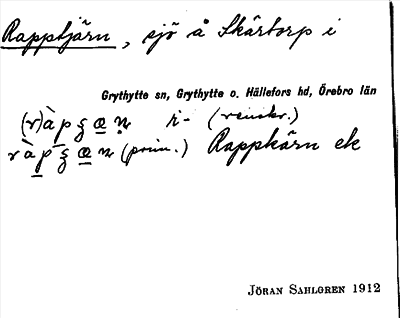 Rapptjärn, sjö å Skårtorp i
Grythytte sn, Grythytte o. Hällefors hd, Örebro län
(renskr.)
(prim.) Rappkärn ek
JÖRAN SAHLGREN 1912